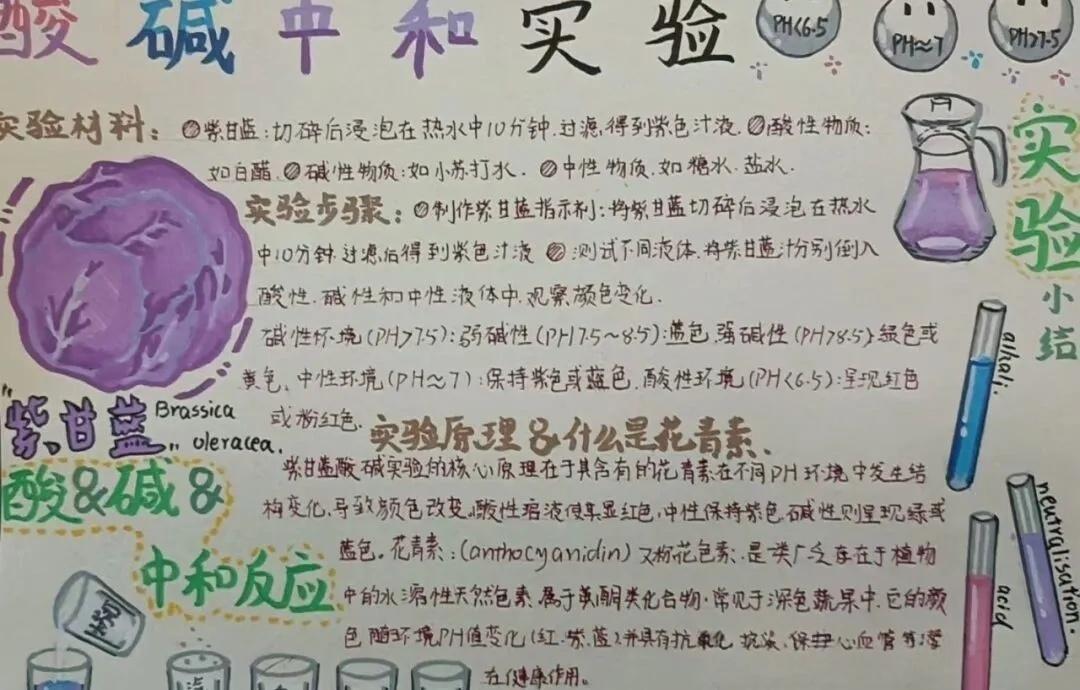 酸碱中和实验
PH<6.5
PH≈7
PH>7.5
实验材料：①紫甘蓝：切碎后浸泡在热水中10分钟.过滤.得到紫色汁液.②酸性物质：
如白醋.③碱性物质：如小苏打水. ④中性物质.如糖水.盐水.
实验步骤：①制作紫甘蓝指示剂：将紫甘蓝切碎后浸泡在热水
中10分钟.过滤后得到紫色汁液 ②测试不同液体.将紫甘蓝汁分别倒入
酸性.碱性和中性液体中.观察颜色变化.
碱性环境(PH>7.5)：弱碱性(PH7.5～8.5)：蓝色.强碱性(PH>8.5)绿色或
黄色、中性环境(PH≈7)：保持紫色或蓝色.酸性环境(PH<6.5)：呈现红色
或粉红色.
"紫甘蓝"
Brassica
oleracea.
实验小结
alkali.
neutralisation.
acid
实验原理&什么是花青素、
紫甘蓝酸碱实验的核心原理在于其含有的花青素在不同PH环境中发生结
构变化.导致颜色改变.酸性溶液使其显红色.中性保持紫色.碱性则呈现绿或
蓝色。花青素：(anthocyanidin)又称花色素.是一类广泛存在于植物
中的水溶性天然色素.属于黄酮类化合物.常见于深色蔬果中.它的颜
色随环境PH值变化(红.紫.蓝)并具有抗氧化.抗炎、保护心血管等潜
在健康作用。
酸&碱&
中和反应